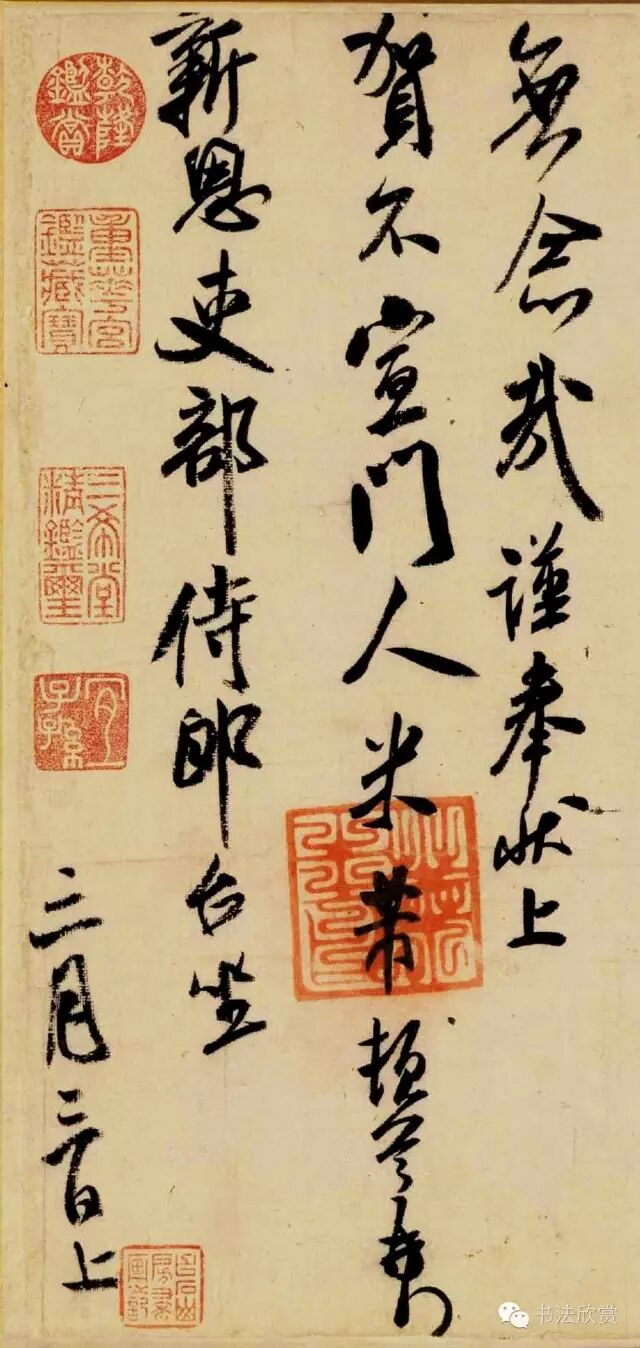 無念哉謹奉狀上
賀不宣門人米芾頓首再拜
新恩吏部侍郎台坐
三月三日上
乾隆鑑賞
重華宮鑑藏寶
三希堂精鑑璽
宜子孫
書法欣赏